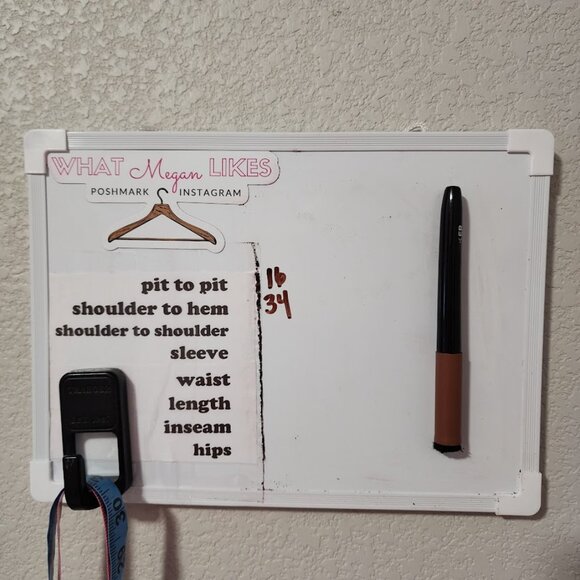 WHAT Megan LIKES
POSHMARK INSTAGRAM
pit to pit 16
shoulder to hem 34
shoulder to shoulder
sleeve
waist
length
inseam
hips
30
29